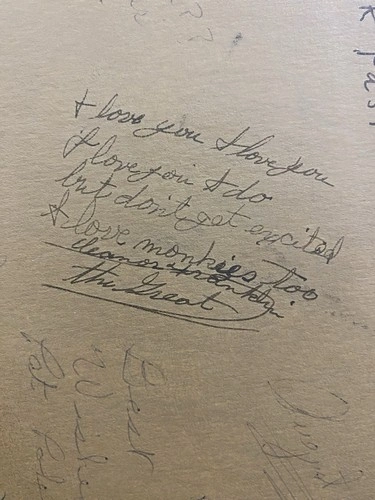 I love you I love you
I love you I do
but don't get excited
I love monkies too
Eleanor Franklin
The Great
Best
Wishes
Pat